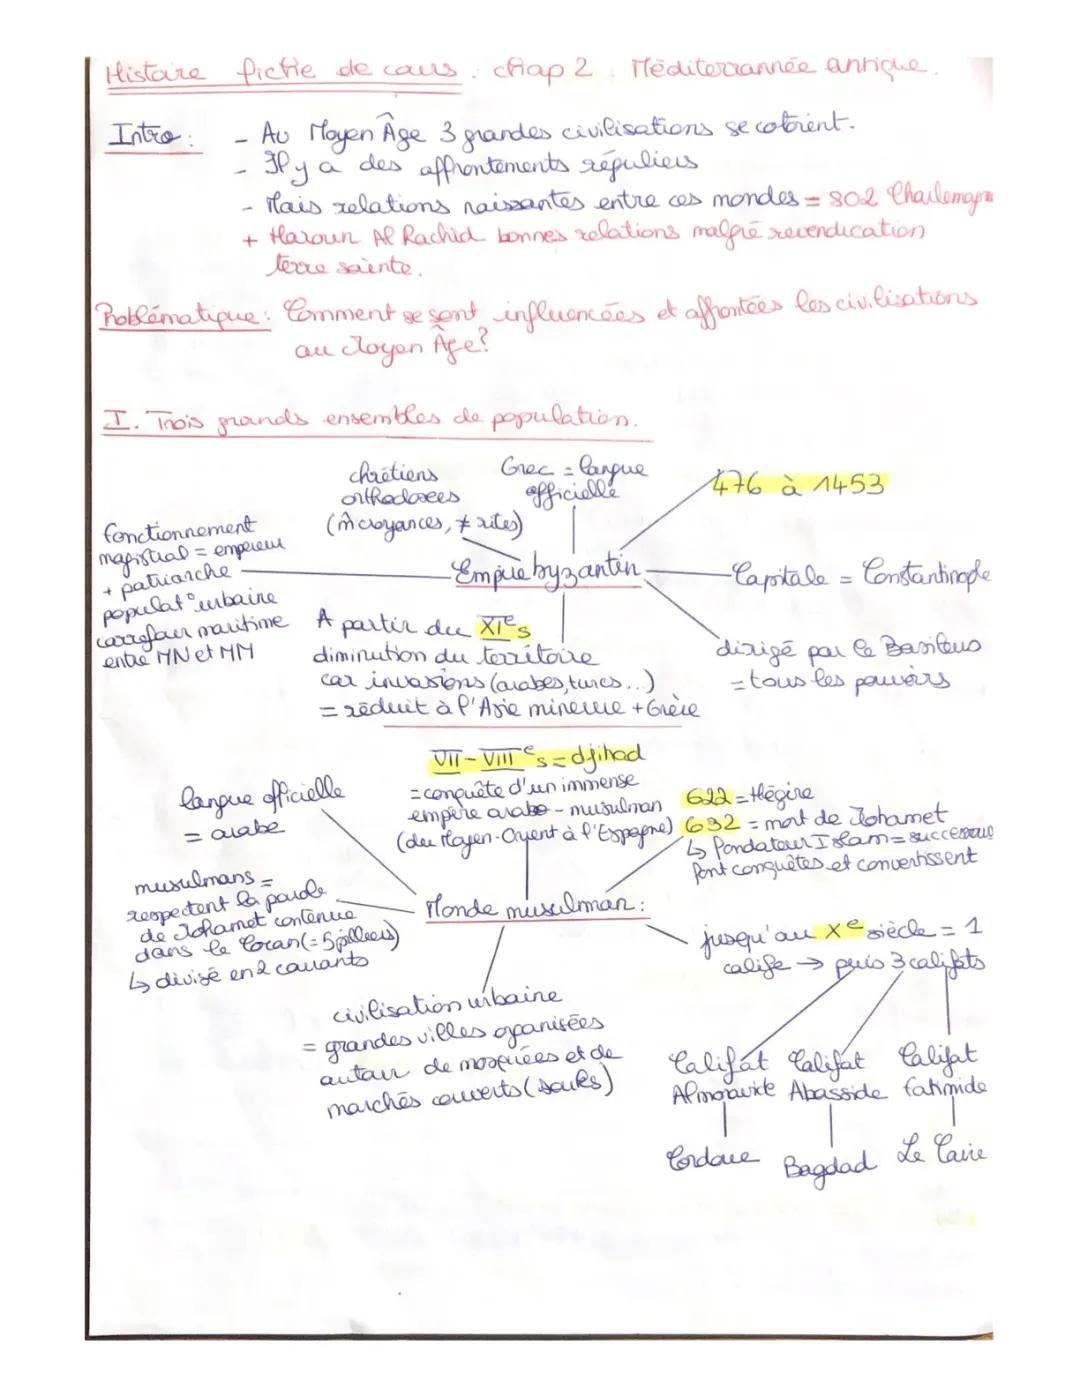 Histoire fiche de cours : chap 2 : Méditerrannée antique.
Intro : - Au Moyen Âge 3 grandes civilisations se cotoient.
- Il y a des affrontements réguliers
- Mais relations naissantes entre ces mondes = 802 Charlemagne
+ Haroun Al Rachid bonnes relations malgré revendication
terre sainte.
Problématique : Comment se sont influencées et affrontées les civilisations
au Moyen Âge?
I. Trois grands ensembles de population.
chrétiens
orthodoxes
(m̂ croyances, ≠ rites)
Grec = langue
officielle
476 à 1453
fonctionnement
magistral = empereur
+ patriarche
populat° urbaine
carrefour maritime
entre MN et MM
Empire byzantin
Capitale = Constantinople
A partir du XIe s
diminution du territoire
car invasions (arabes, turcs...)
= réduit à l'Asie mineure + Grèce
dirigé par le Basileus
= tous les pouvoirs
VII - VIIIe s = djihad
= conquête d'un immense
empire arabo - musulman
(du Moyen-Orient à l'Espagne)
langue officielle
= arabe
622 = Hégire
632 = mort de Mohamet
↳ fondateur Islam = successeurs
font conquêtes et convertissent
musulmans =
respectent la parole
de Mohamet contenue
dans le Coran (= 5 pilliers)
↳ divisé en 2 courants
Monde musulman :
jusqu'au Xe siècle = 1
calife → puis 3 califats
civilisation urbaine
= grandes villes organisées
autour de mosquées et de
marchés couverts (souks)
Califat Califat Califat
Almoravide Abasside fatimide
Cordoue Bagdad Le Caire